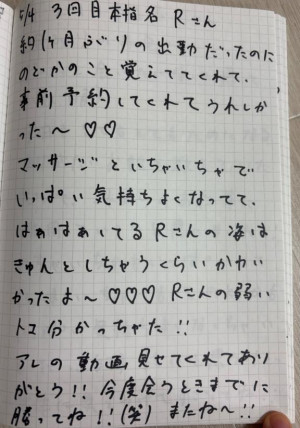 5/4 3回目本指名 Rさん
約1ヶ月ぶりの出勤だったのに
のどかのこと覚えててくれて、
事前予約してくれてうれしか
った〜♡♡
マッサージといちゃいちゃで
いっぱい気持ちよくなってて、
はぁはぁしてるRさんの姿は
きゅんとしちゃうくらいかわい
かったよ〜♡♡♡ Rさんの弱い
トコ分かっちゃた!!
アレの動画見せてくれてあり
がとう!! 今度会うときまでに
勝ってね!!(笑) またね〜!!